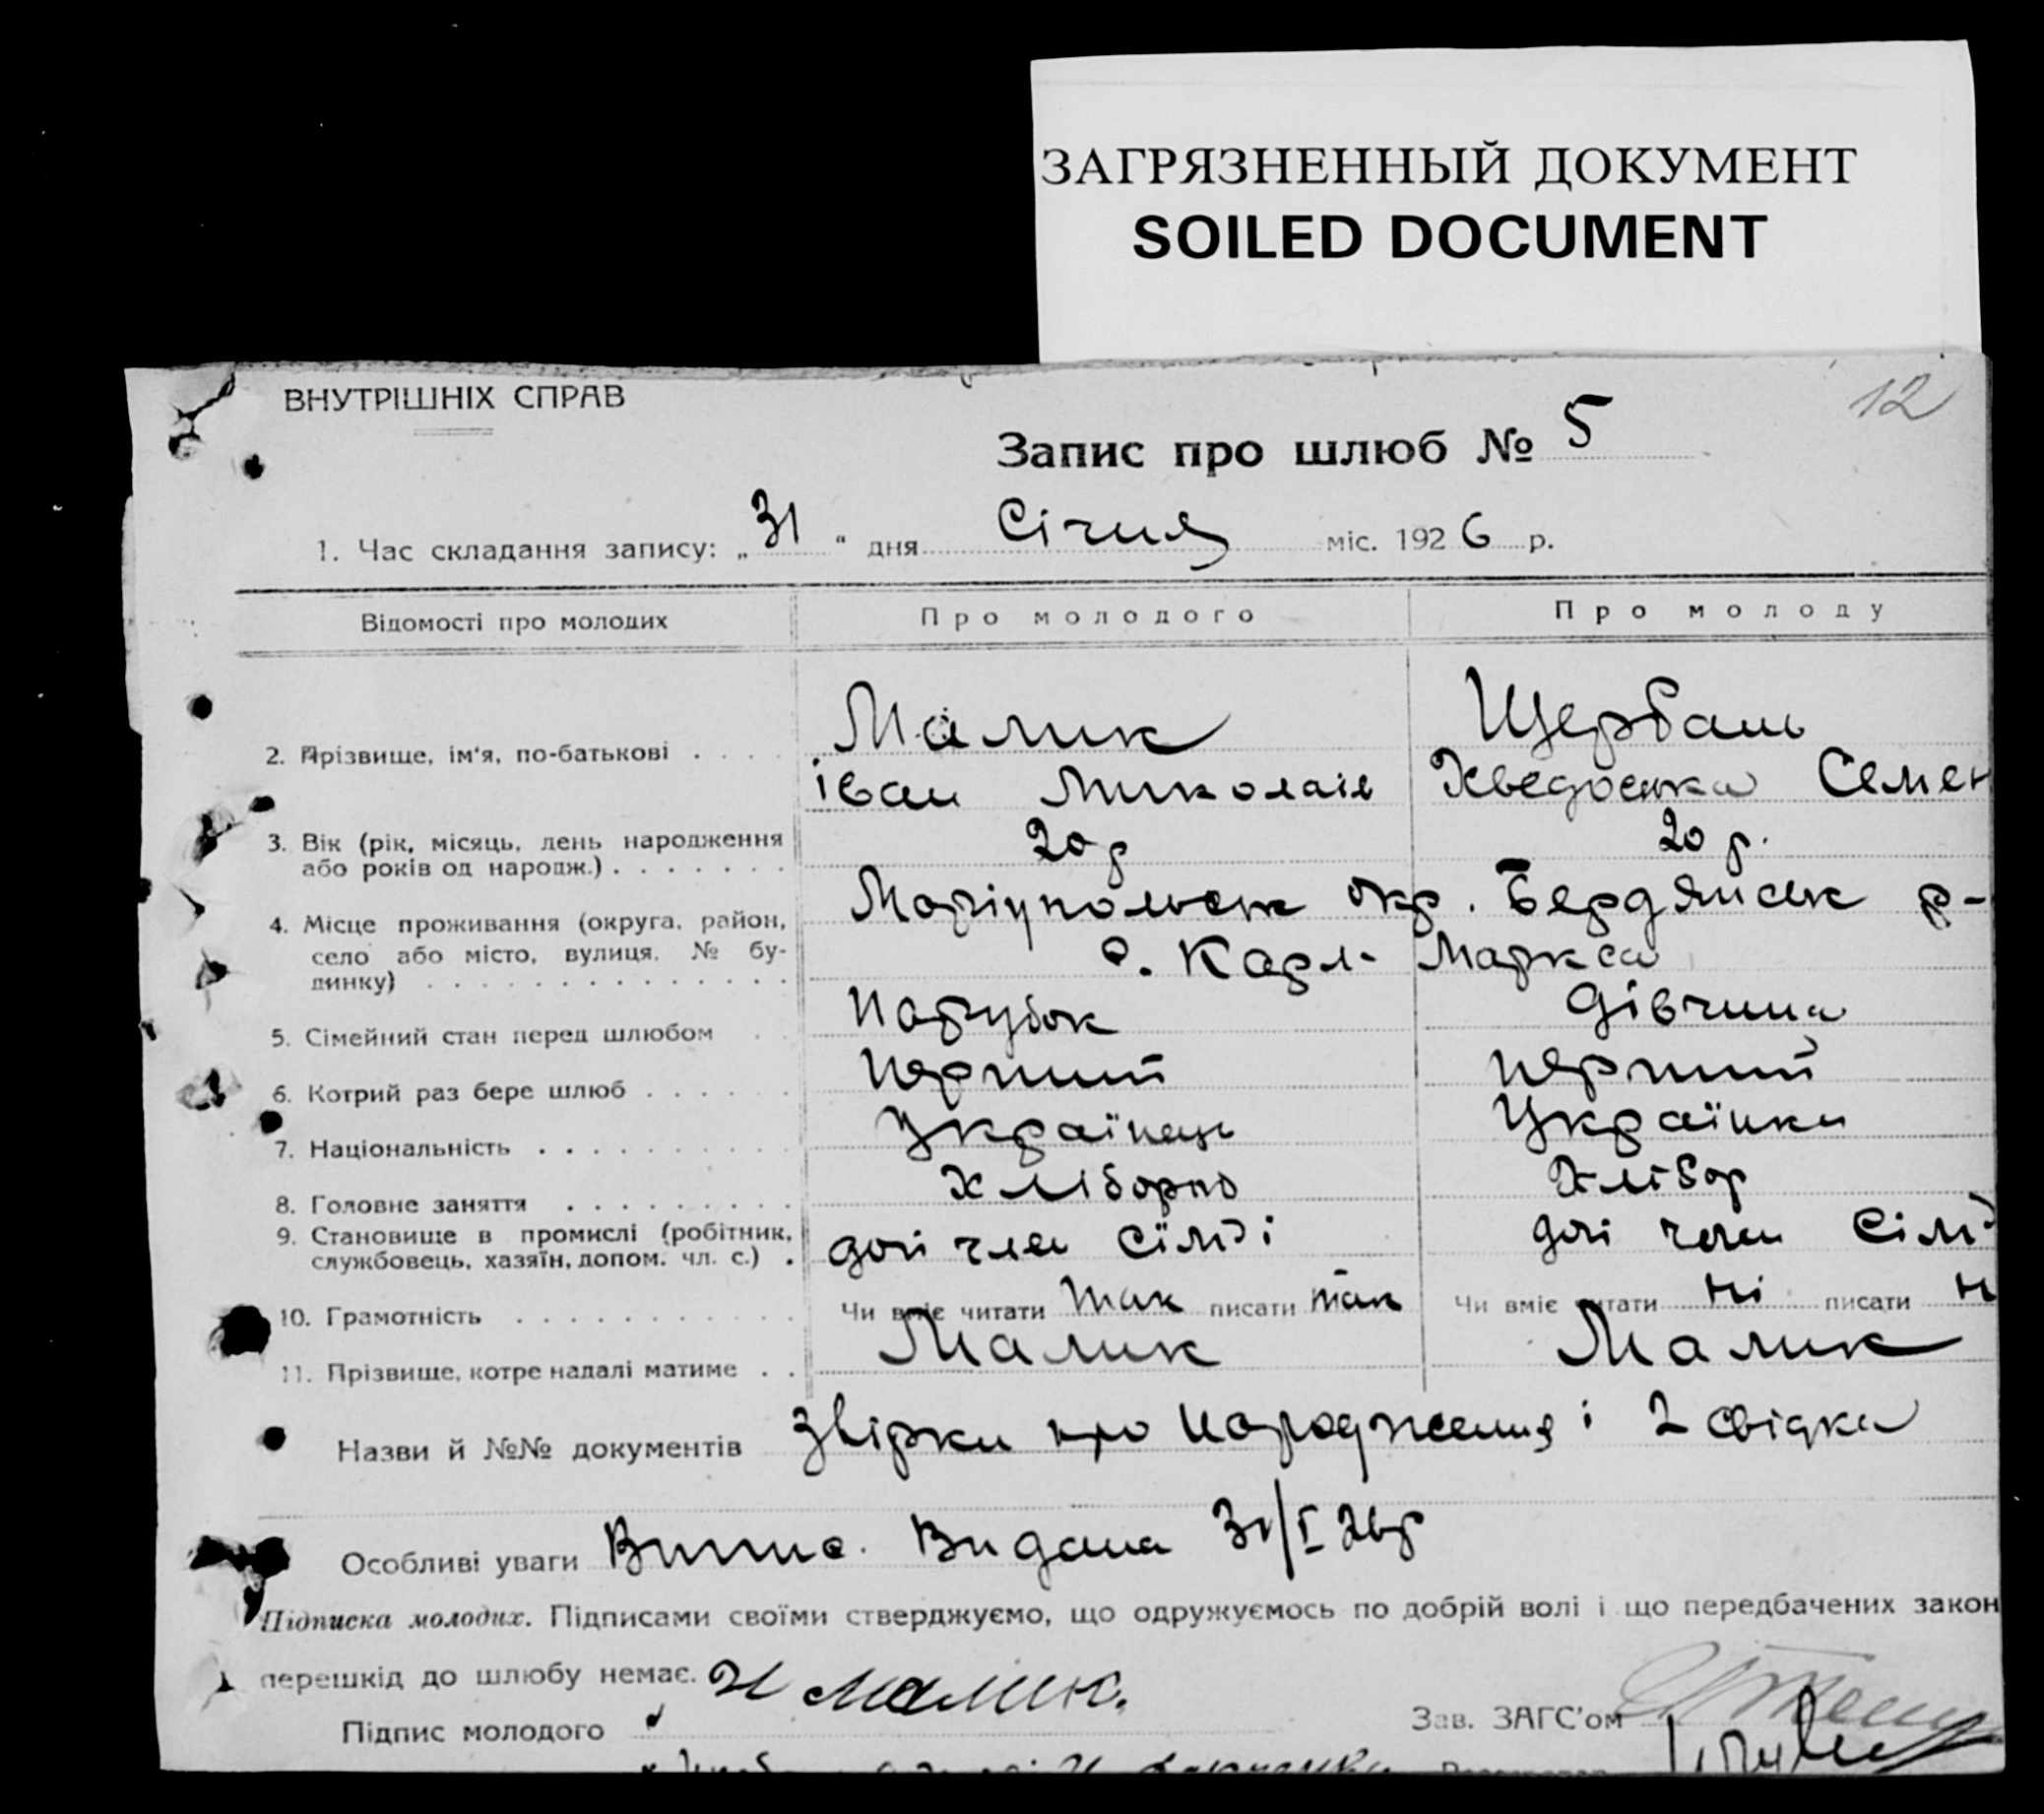 ЗАГРЯЗНЕННЫЙ ДОКУМЕНТ
SOILED DOCUMENT
12
ВНУТРІШНІХ СПРАВ
Запис про шлюб № 5
1. Час складання запису: „31“ дня Січня міс. 1926 р.
Відомості про молодих Про молодого Про молоду
2. Прізвище, ім'я, по-батькові . . . . Малик Щербань
іван Миколаїв Хведоська Семен
3. Вік (рік, місяць, день народження 20 р 20 р.
або років од народж.) . . . . . . .
4. Місце проживання (округа, район, Маріупольськ окр. Бердянськ р-
село або місто, вулиця, № бу- с. Карл- Маркса
динку) . . . . . . . . . . . . . .
5. Сімейний стан перед шлюбом . . парубок дівчина
6. Котрий раз бере шлюб . . . . . . перший перший
7. Національність . . . . . . . . . . Українець Українка
8. Головне заняття . . . . . . . . . Хлібороб Хлібор
9. Становище в промислі (робітник, чл сім'ї сім'
службовець, хазяїн, допом. чл. с.) .
10. Грамотність . . . . . . . . . . . Чи вміє читати так писати так Чи вміє читати ні писати н
11. Прізвище, котре надалі матиме . . Малик Малик
Назви й №№ документів Звірки про народження і 2 свідка
Особливі уваги Випис. Видана 31/I 26р
Підписка молодих. Підписами своїми стверджуємо, що одружуємось по добрій волі і що передбачених закон
перешкід до шлюбу немає. И Малик.
Підпис молодого Зав. ЗАГС'ом